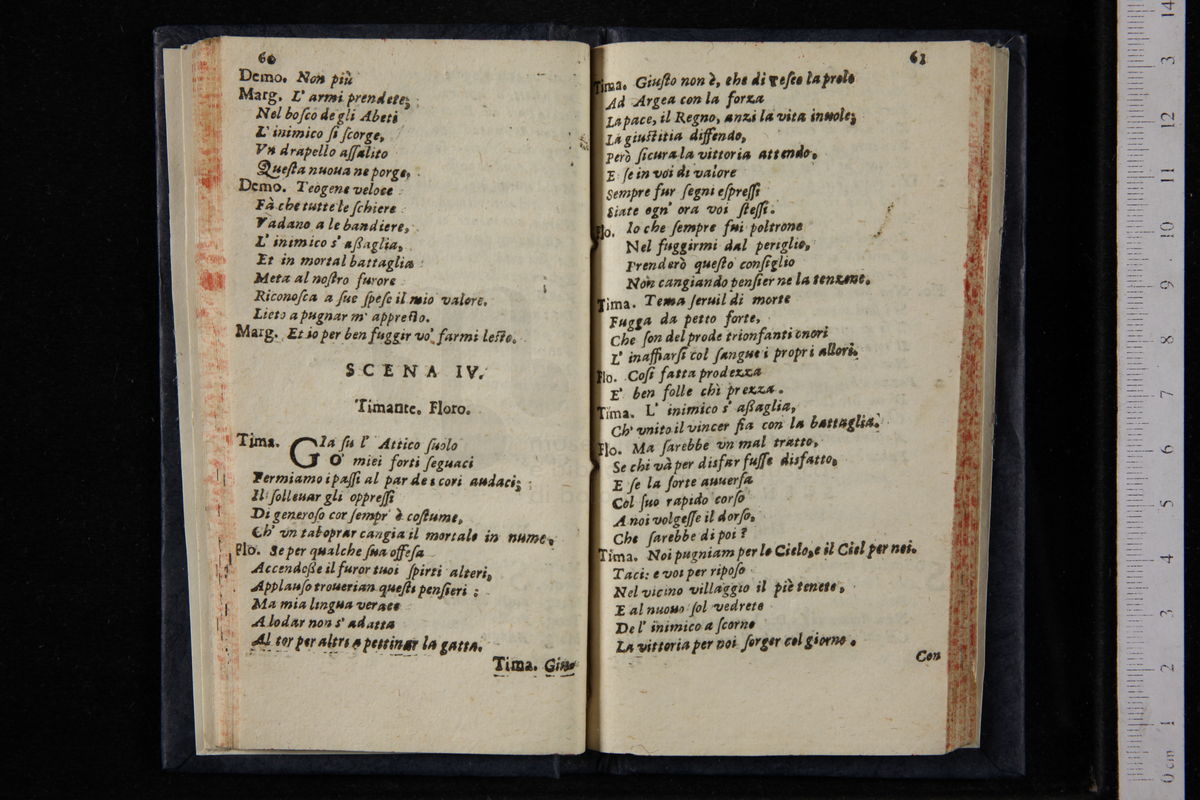 60
Demo. Non più
Marg. L' armi prendete;
Nel bosco degli Abeti
L' inimico si scorge,
Vn drapello assalito
Questa nuoua ne porge,
Demo. Teogene veloce
Fà che tutte le schiere
Vadano a le bandiere,
L' inimico s' assaglia,
Et in mortal battaglia
Meta al nostro furore
Riconosca a sue spese il mio valore.
Lieto a pugnar m' appresto.
Marg. Et io per ben fuggir vo' farmi lesto.
SCENA IV.
Timante. Floro.
Tima. GIa sù l' Attico suolo
O' miei forti seguaci
Fermiamo i passi al par de i cori audaci;
Il solleuar gli oppressi
Di generoso cor sempr' è costume,
Ch' vn tal oprar cangia il mortale in nume.
Flo. Se per qualche sua offesa
Accendesse il furor tuoi spirti alteri,
Applauso trouerian questi pensieri;
Ma mia lingua verace
A lodar non s' adatta
Al tor per altri a pettinar la gatta.
Tima. Giusto
61
Tima. Giusto non è, che di Teseo la prole
Ad Argea con la forza
La pace, il Regno, anzi la vita inuole;
La giustitia diffendo,
Però sicura la vittoria attendo.
E se in voi di valore
Sempre fur segni espressi
Siate ogn' ora voi stessi.
Flo. Io che sempre fui poltrone
Nel fuggirmi dal periglio,
Prenderò questo consiglio
Non cangiando pensier ne la tenzone.
Tima. Tema seruil di morte
Fugga da petto forte,
Che son del prode trionfanti onori
L' inaffiarsi col sangue i propri allori.
Flo. Così fatta prodezza
E' ben folle chi prezza.
Tima. L' inimico s' assaglia,
Ch' vnito il vincer fia con la battaglia.
Flo. Ma sarebbe vn mal tratto,
Se chi và per disfar fusse disfatto,
E se la sorte auuersa
Col suo rapido corso
A noi volgesse il dorso,
Che sarebbe di poi?
Tima. Noi pugniam per lo Cielo, e il Ciel per noi.
Taci: e voi per riposo
Nel vicino villaggio il piè tenete,
E al nuouo sol vedrete
De l' inimico a scorno
La vittoria per noi sorger col giorno.
Con
14
3
12
11
10
9
8
7
6
5
4
3
2
1
0 cm